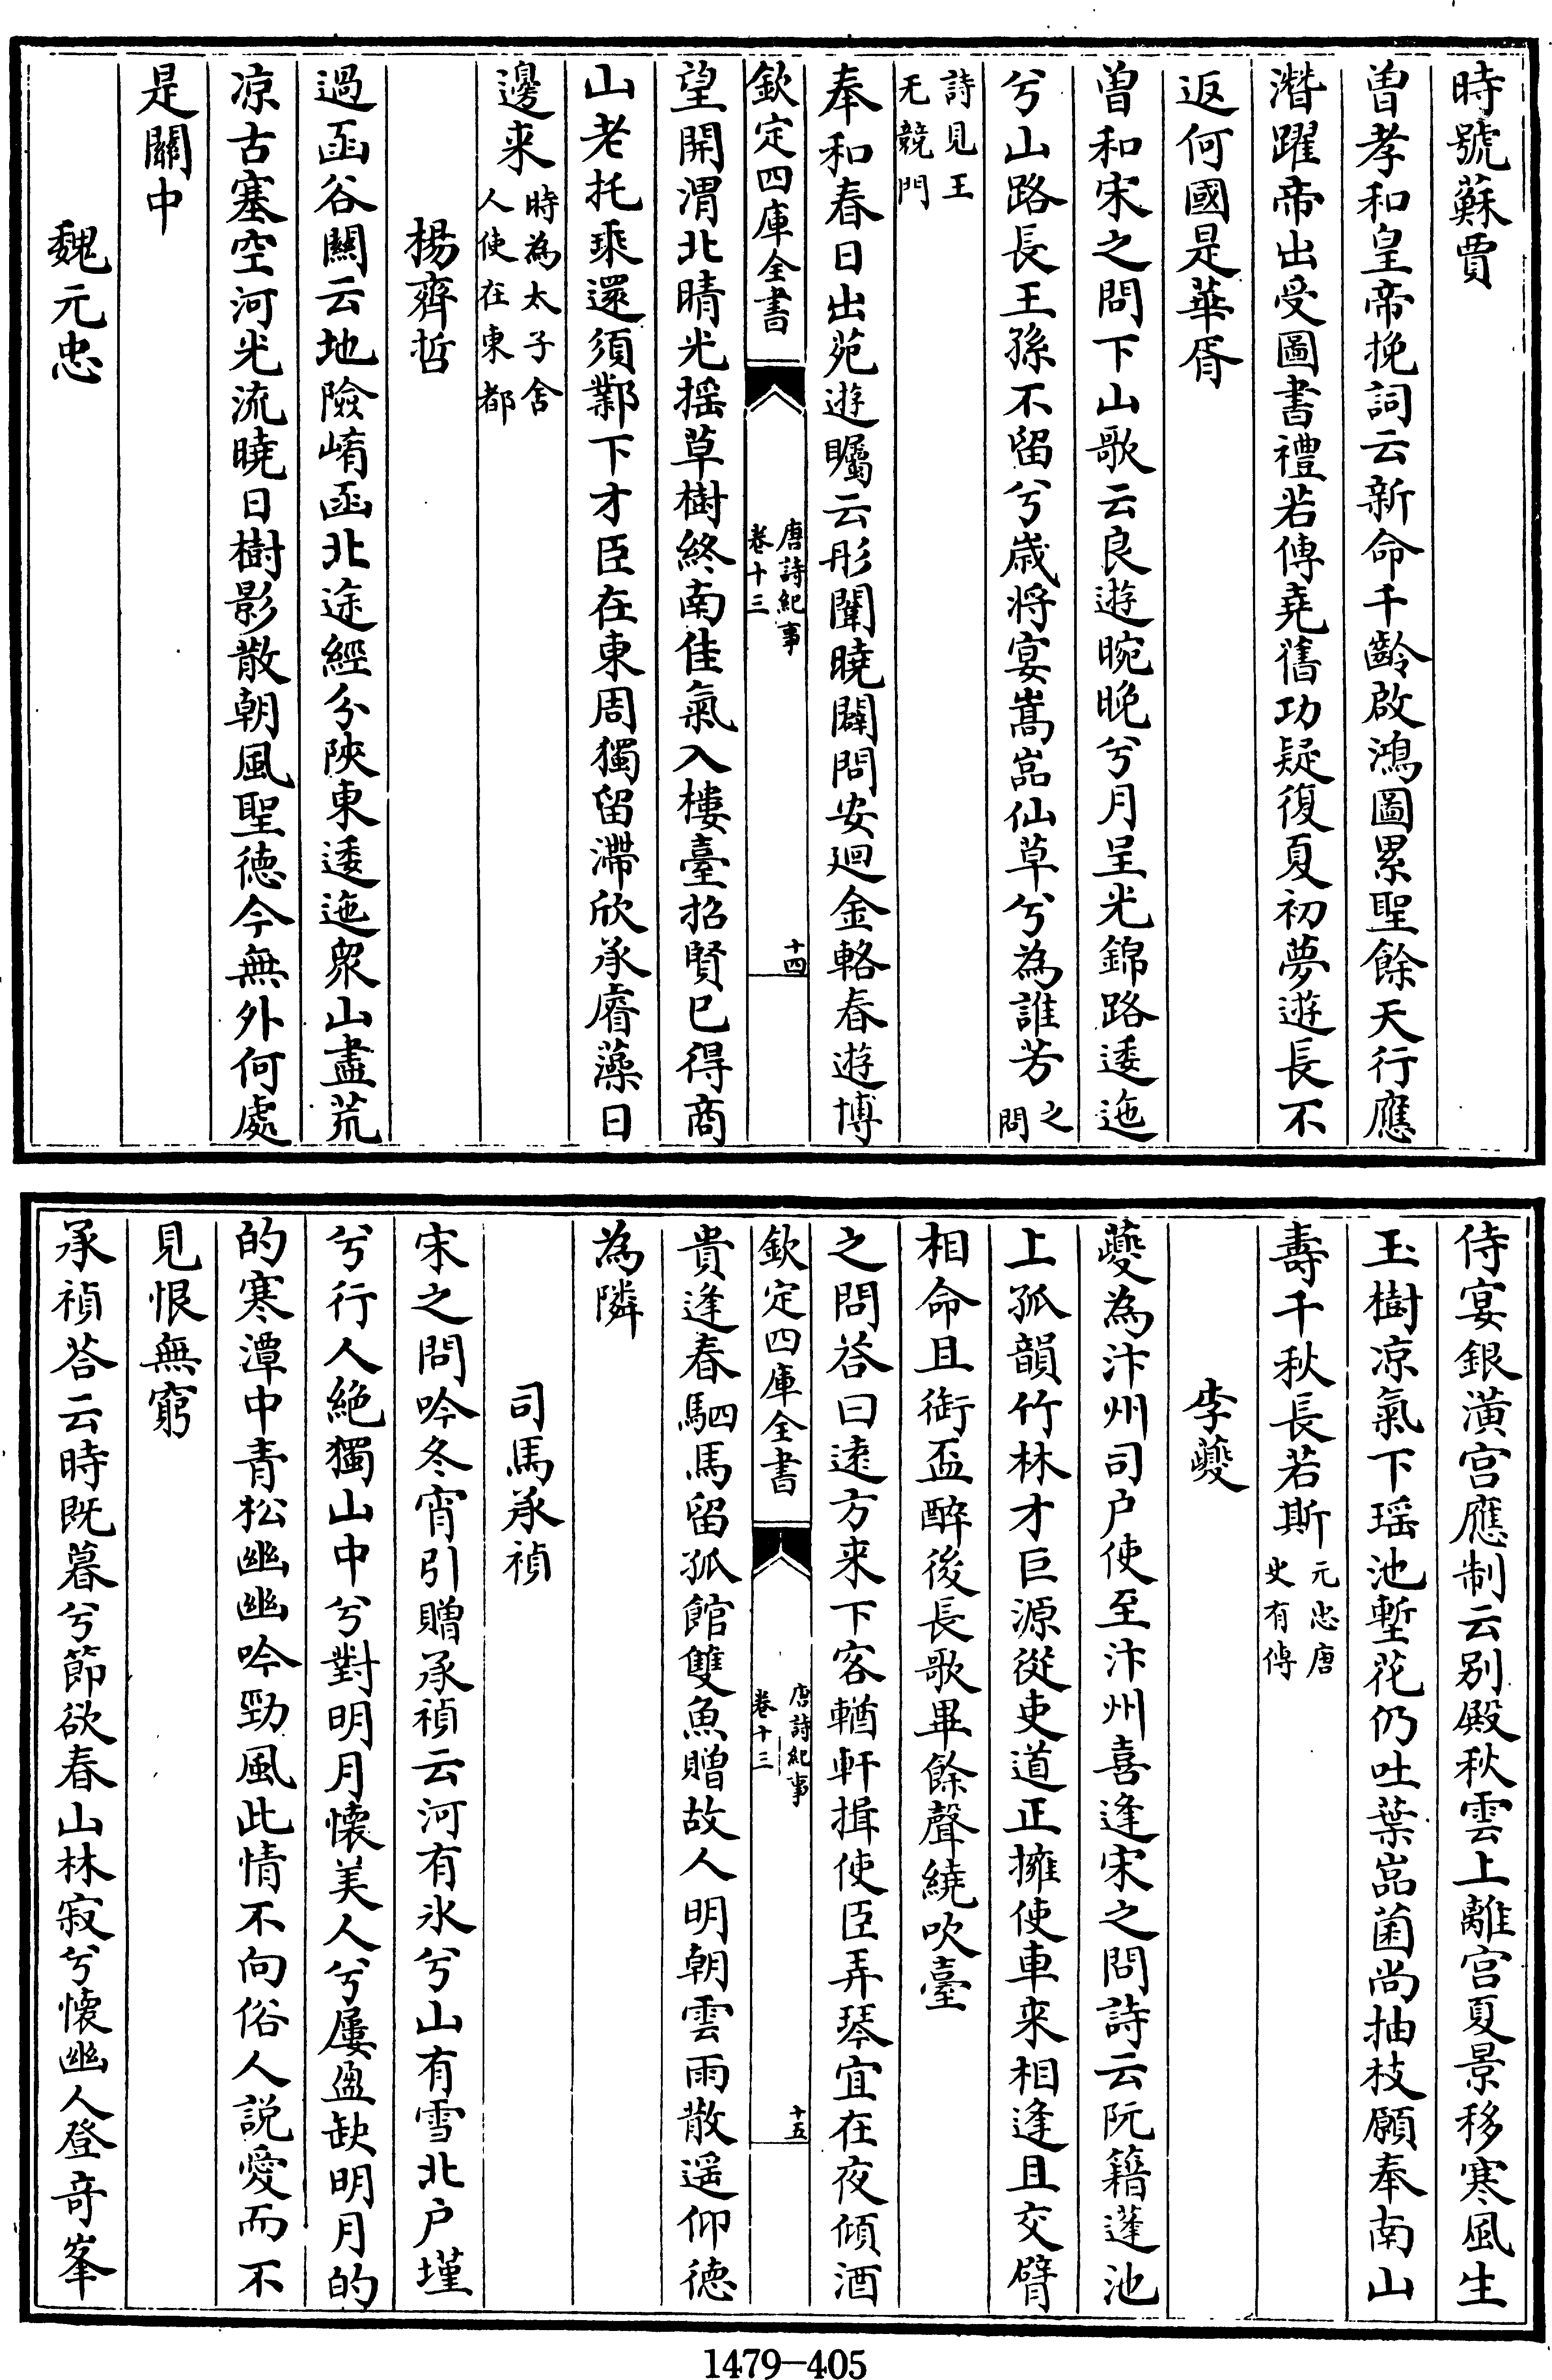 時號蘇賈
曽孝和皇帝挽詞云新命千齡啟鴻圖累聖餘天行應
濳躍帝出受圖書禮若傳堯舊功疑復夏初夢遊長不
返何國是華胥
曽和宋之問下山歌云良遊晼晚兮月呈光錦路逶迤
兮山路長王孫不留兮歲将宴嵩嵓仙草兮為誰芳之問
詩見王无競門
奉和春日出苑遊矚云彤闈曉闢問安廻金輅春遊博
欽定四庫全書
唐詩紀事
卷十三
十四
望開渭北晴光揺草樹終南佳氣入樓臺招賢已得商
山老托乘還須鄴下才臣在東周獨留滯欣承睿藻日
邊来時為太子舍人使在東都
楊齊哲
過函谷關云地險崤函北途經分陜東逶迤衆山盡荒
凉古塞空河光流曉日樹影散朝風聖徳今無外何處
是關中
魏元忠
侍宴銀潢宫應制云别殿秋雲上離宫夏景移寒風生
玉樹凉氣下瑶池塹花仍吐葉嵓菌尚抽枝願奉南山
壽千秋長若斯元忠唐史有傳
李夔
夔為汴州司户使至汴州喜逢宋之問詩云阮籍蓬池
上孤韻竹林才巨源從吏道正擁使車来相逢且交臂
相命且銜盃醉後長歌畢餘聲繞吹臺
之問荅曰逺方来下客輶軒揖使臣弄琴宜在夜傾酒
欽定四庫全書
唐詩紀事
卷十三
十五
貴逢春駟馬留孤館雙魚贈故人明朝雲雨散遥仰徳
為隣
司馬承禎
宋之問吟冬宵引贈承禎云河有氷兮山有雪北户墐
兮行人絶獨山中兮對明月懐美人兮屢盈缺明月的
的寒潭中青松幽幽吟勁風此情不向俗人説愛而不
見恨無窮
承禎荅云時既暮兮節欲春山林寂兮懐幽人登竒峯
1479—405